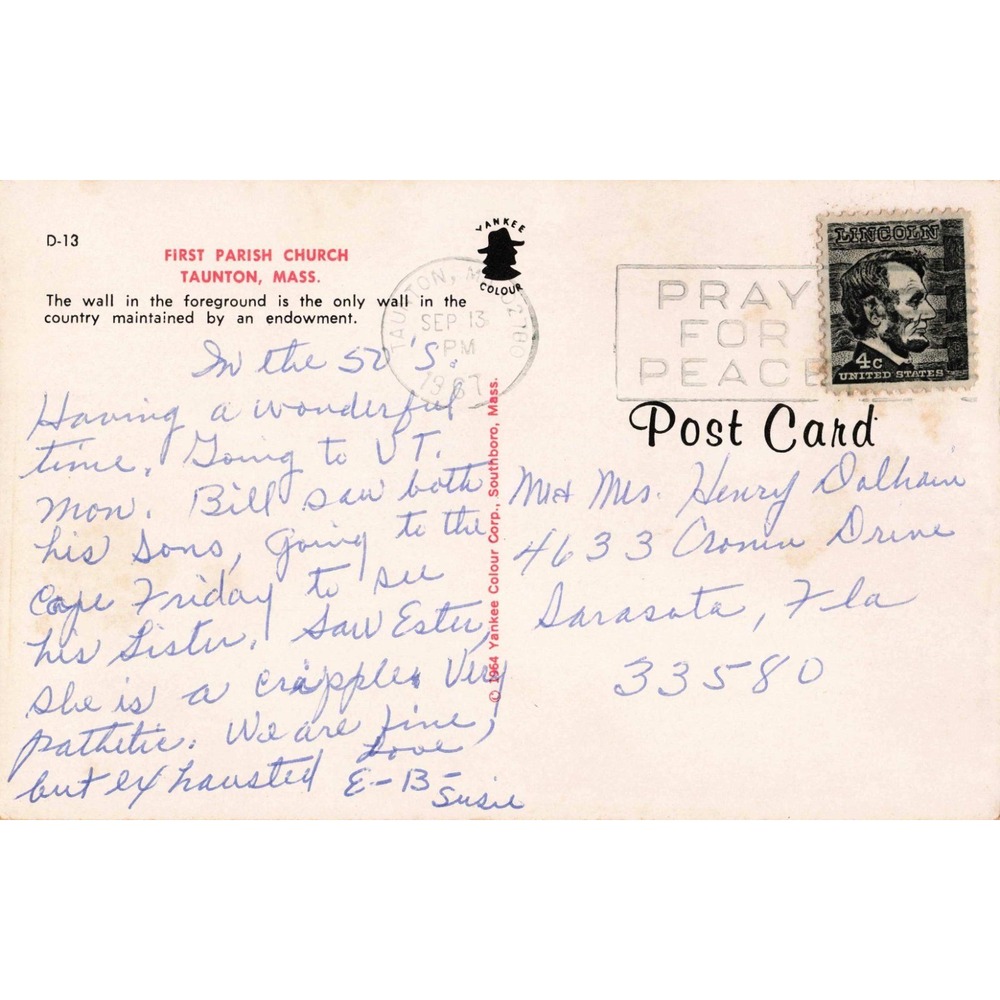 D-13
FIRST PARISH CHURCH
TAUNTON, MASS.
The wall in the foreground is the only wall in the
country maintained by an endowment.
YANKEE
COLOUR
TAUNTON, MA 02780
SEP 13
PM
1967
PRAY
FOR
PEACE
LINCOLN
4c
UNITED STATES
Post Card
© 1964 Yankee Colour Corp., Southboro, Mass.
In the 50'S.
Having a wonderful
time. Going to VT.
Mon. Bill saw both
his sons, going to the
Cape Friday to see
his Sister. Saw Ester,
she is a cripple. Very
pathetic. We are fine,
but exhausted Love
E-B-
Susie
Mr + Mrs. Henry Dalhain
4633 Drive
Sarasota, Fla
33580